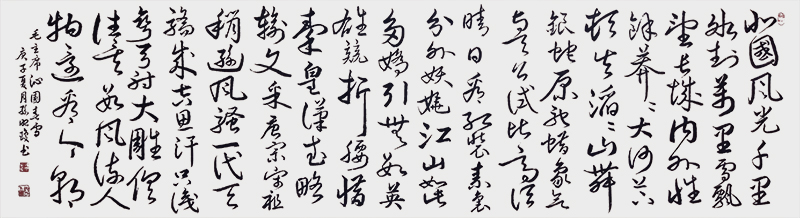 北國風光千里
冰封萬里雪飄
望長城內外惟
餘莽々大河上
頓失滔々山舞
銀蛇原馳蠟象欲
與天公試比高須
晴日看紅裝素裹
分外妖嬈江山如此
多嬌引無數英
雄競折腰惜
秦皇漢武略
輸文采唐宗宋祖
稍遜風騷一代天
驕成吉思汗只識
彎弓射大雕俱
往矣數風流人
物還看今朝
毛主席沁園春雪
庚子夏月書